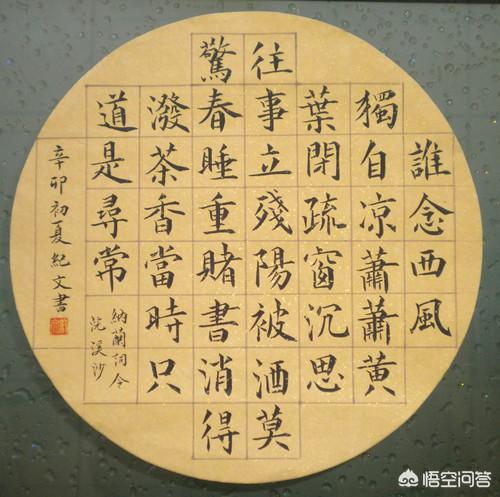 誰念西風
獨自凉蕭蕭黄
葉閉疏窗沉思
往事立殘陽被酒莫
驚春睡重賭書消得
潑茶香當時只
道是尋常
納蘭詞令
浣溪沙
辛卯初夏紀文書
悟空问答